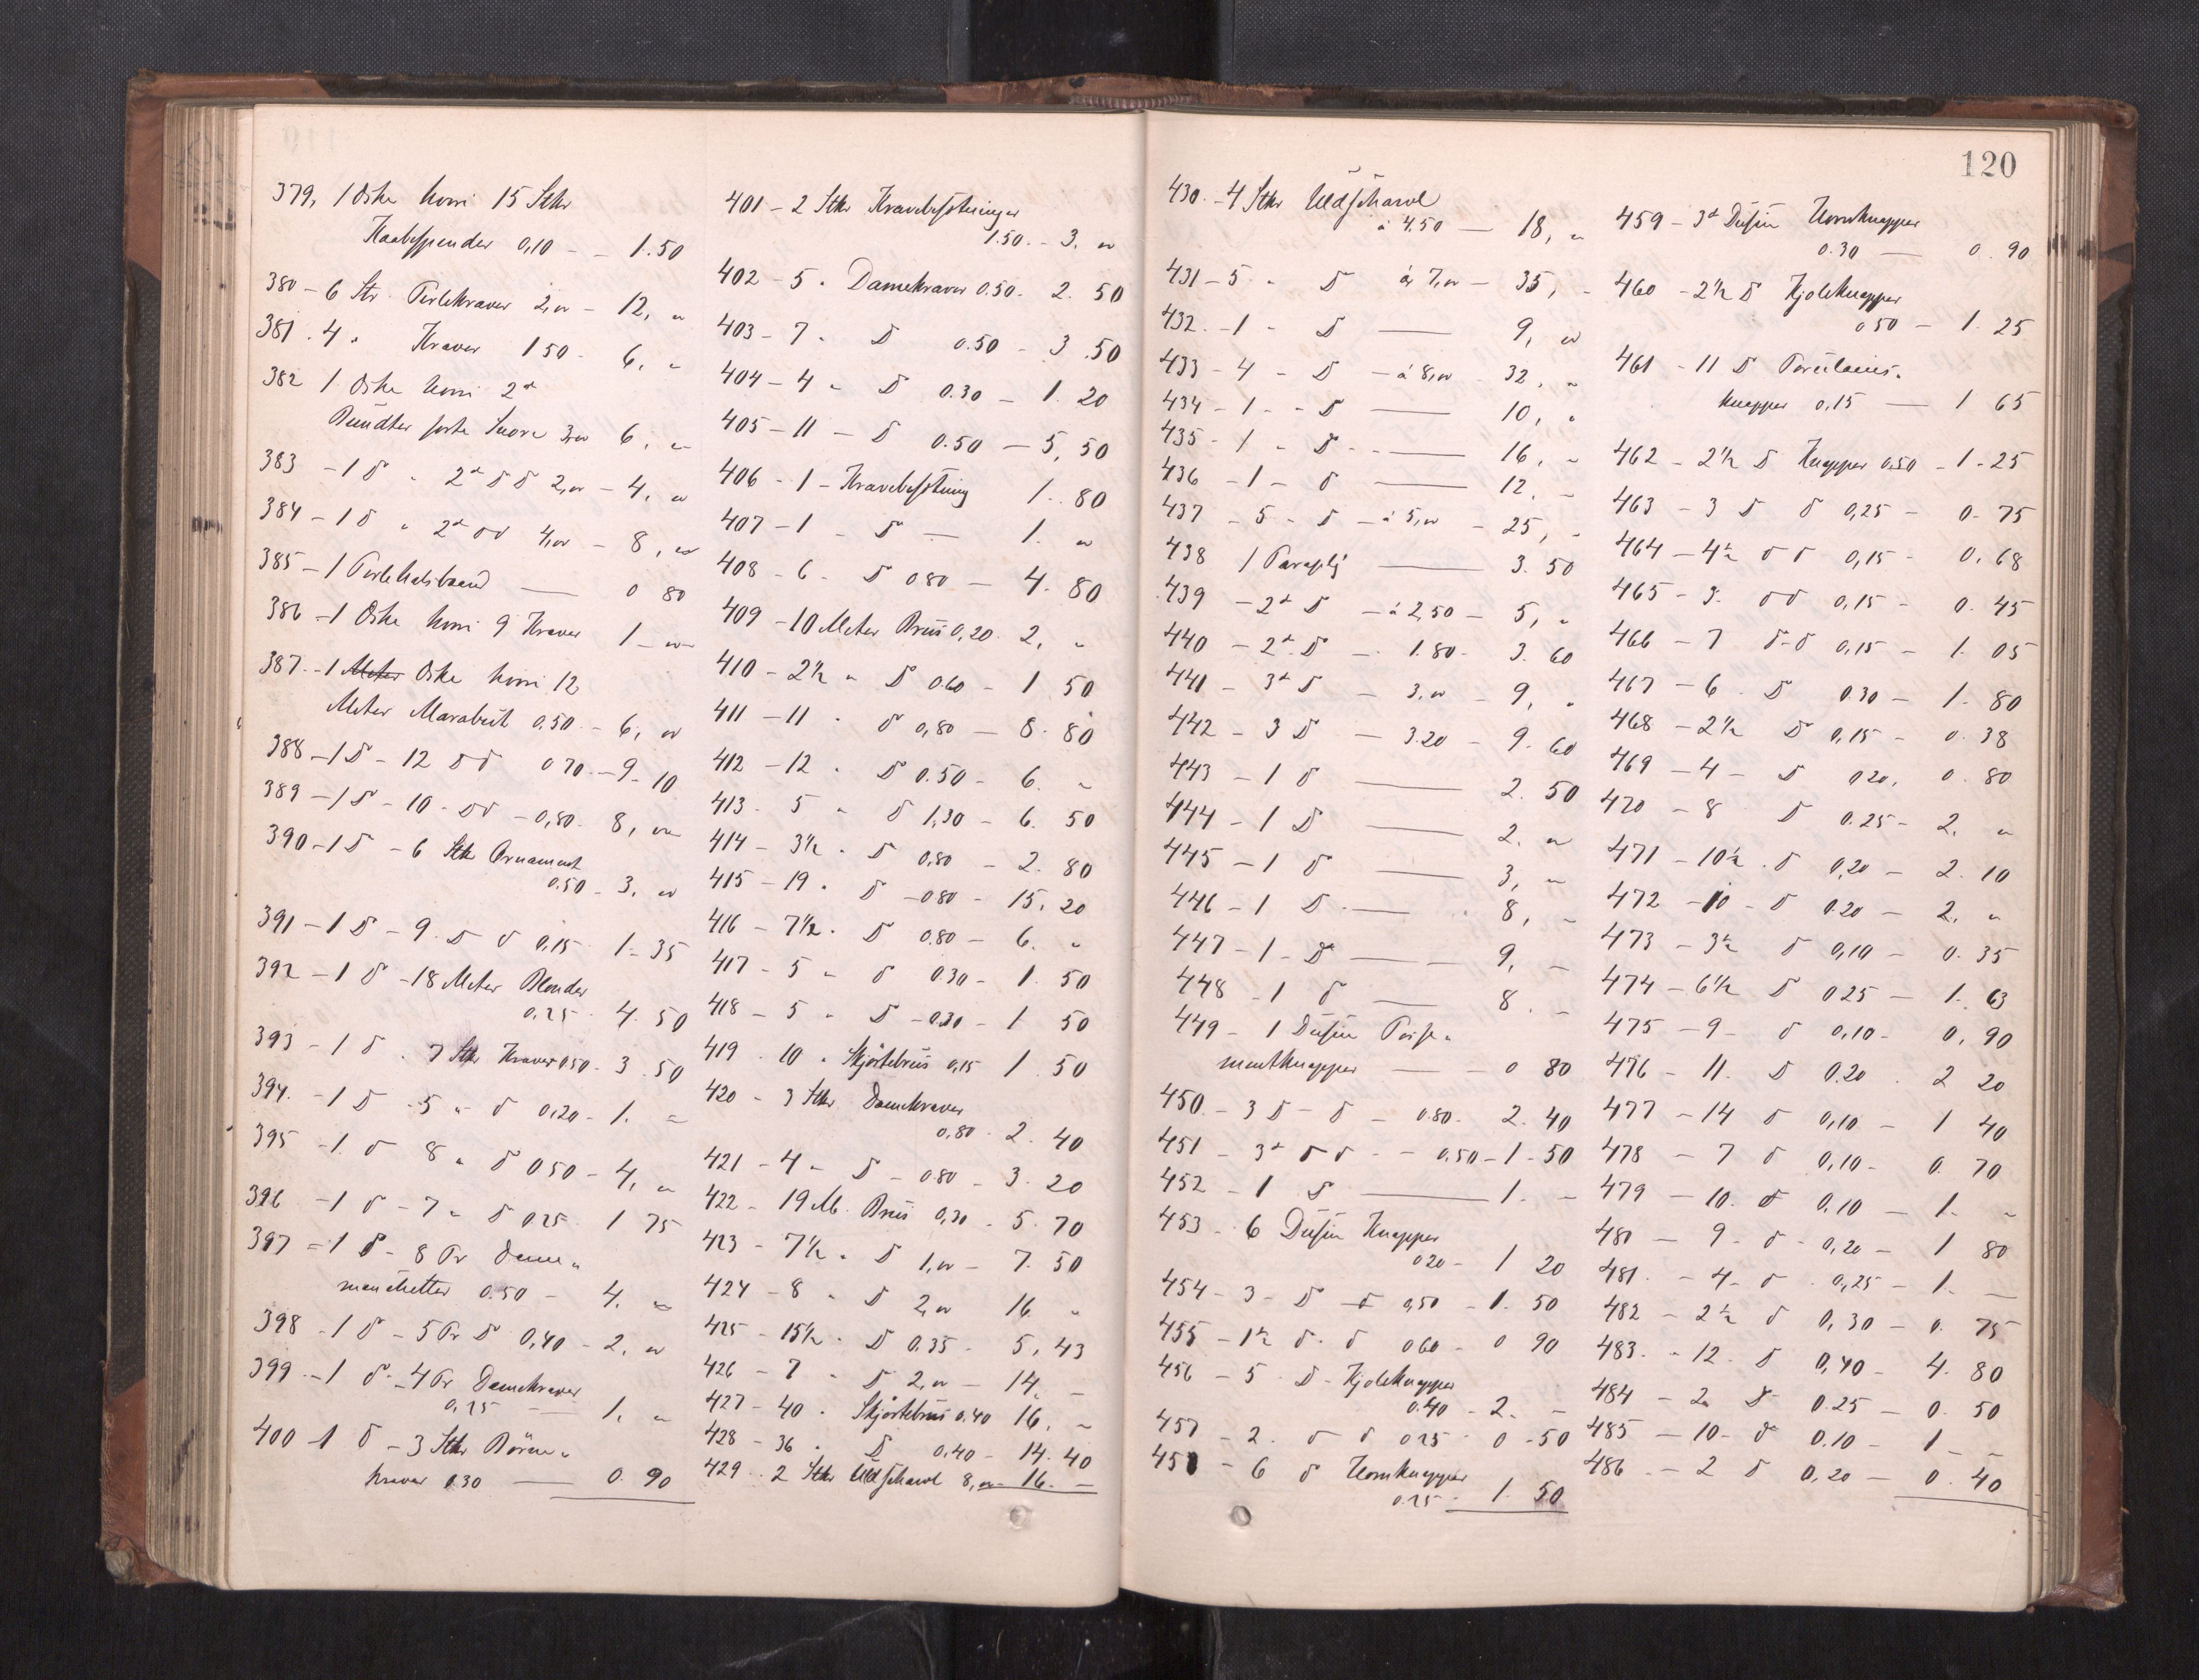 379, 1 Öske hvori 15 Stkr
Kaabespender 0,10 - - 1.50
380 - 6 Str. Perlekraver 2,00 - 12, "
381 . 4 " Kraver 1 50 - 6, "
382 1 Öske hvori 2
Bundter sorte Snore 3,00 6, "
383 - 1 D " 2 D D 2,00 - 4, "
384 - 1 D " 2 D D 4,00 - 8, "
385 - 1 Perlehalsbaand — 0 80
386 - 1 Öske hvori 9 Kraver 1 - "
387 - 1 Öske hvori 12
Meter Marabut 0,50 - 6, "
388 - 1 D - 12 D D 0 70 - 9 - 10
389 - 1 D - 10 - D D - 0,80 - 8, "
390 - 1 D - 6 Stk Ornament
0.50 - 3, "
391 - 1 D - 9 - D D 0,15 1 - 35
392 - 1 D - 18 Meter Blonder
0,25 . 4. 50
393 - 1 D . 7 Stkr Kraver 0.50 - 3 . 50
394. - 1 D - 5 " D 0,20 - 1. "
395 - 1 D 8 " D 0 50 - 4, "
396 - 1 D - 7 " D 0.25 . 1 75
397 - 1 D - 8 Pr Dame-
manchetter 0.50 - 4, "
398 - 1 D - 5 Pr D 0,40 - 2, "
399 - 1 D - 4 Pr Damekraver
0,25 — 1, "
400 1 D - 3 Stkr Börne-
kraver 0.30 — 0. 90
401 - 2 Stkr Kravebesetninger
1.50 - 3, "
402 - 5 " Damekraver 0.50 - 2. 50
403 - 7 " D 0.50 - 3 .50
404 - 4 " D 0.30 - 1. 20
405 - 11 - D 0.50 - 5, 50
406 - 1 - Kravebesetning 1. 80
407 - 1 - D — 1. "
408 - 6 - D 0 80 - 4. 80
409 - 10 Meter Brus 0,20 . 2, "
410 - 2½ " D 0.60 - 1 50
411 - 11 " D 0,80 - 8. 80
412 - 12 " D 0.50 - 6. "
413 - 5 " D 1,30 - 6. 50
414 - 3½ " D 0,80 - 2. 80
415 - 19 " D - 0 80 - 15, 20
416 - 7½ " D 0,80 - 6. "
417 - 5 " D 0 30 - 1. 50
418 - 5 " D - 0.30 - 1 50
419 . 10 " Skjørtebrus 0,15 1 . 50
420 - 3 Stkr Damekraver
0,80 . 2. 40
421 - 4 " D - 0.80 - 3. 20
422 - 19 M. Brus 0,30 - 5. 70
423 - 7½ " D 1,00 - 7. 50
424 - 8 " D 2,00 16 "
425 - 15½ " D 0.35 - 5, 43
426 - 7 " D 2,00 - 14, -
427 - 40 " Skjørtebrus 0.40 16, "
428 - 36 " D 0,40 - 14. 40
429 . 2 Stkr Uldschavl 8,00 - 16. -
120
430. - 4 Stkr Uldschavl
à 4.50 — 18, "
431 - 5 - D à 7,00 - 35, -
432. - 1 - D — 9, "
433 - 4 - D - à 8,00 - 32, "
434 - 1 - - D — 10, "
435 - 1 - D — 16, "
436 - 1 - D — 12. -
437 - 5 - D - à 5,00 - 25, -
438 1 Paraply — 3. 50
439 - 2 D - à 2,50 - 5, "
440 - 2 D - 1.80 - 3. 60
441 - 3 D - 3,00 - 9, "
442 - 3 D - 3.20 - 9. 60
443 - 1 D — 2. 50
444 - 1 D — 2. "
445 - 1 D — 3, "
446 - 1 D — 8, -
447 - 1 - D — 9, -
448 - 1 D — 8. -
449 - 1 Dusin Posse-
mentknapper — 0 80
450 - 3 D - D - 0.80 - 2. 40
451 - 3 D D - 0.50 - 1 - 50
452 - 1 D — 1. -
453 - 6 Dusin Knapper
0 20 - 1 20
454 - 3 - D D 0,50 - 1. 50
455 - 1½ D . D 0 60 - 0 90
456 - 5 . D - Kjoleknapper
0.40 - 2. -
457 - 2. D D 0 25 - 0 - 50
458 - 6 D Hornknapper
0.25 . 1. 50
459 - 3 Dusin Hornknapper
0.30 — 0. 90
460 - 2½ D Kjoleknapper
0 50 - 1. 25
461 - 11 D Porcelains-
knapper 0,15 — 1 65
462 - 2½ D Knapper 0.50 - 1 - 25
463 - 3 D D 0,25 - 0. 75
464 - 4½ D D 0,15 - 0, 68
465 - 3. D D 0,15 - 0. 45
466 - 7 D - D 0,15 - 1. 05
467 - 6 . D 0.30 - 1. 80
468 - 2½ D 0,15 - 0. 38
469 - 4 - D 0 20, 0. 80
470 - 8 D 0.25 - 2. "
471 - 10½ . D 0,20 - 2. 10
472 - 10 - D 0.20 - 2. "
473 - 3½ D 0,10 - 0. 35
474 - 6½ D 0 25 - 1. 63
475 - 9 - D 0,10 - 0, 90
476 - 11. D 0.20 . 2 20
477 - 14 D 0,10 - 1 40
478 - 7 D 0,10 - 0. 70
479 - 10. D 0.10 - 1. "
480 - 9 - D - 0,20 - 1 80
481. - 4 - D - 0,25 - 1. —
482 - 2½ D 0,30 - 0. 75
483. - 12. D 0,40 - 4. 80
484 - 2 D 0.25 - 0. 50
485 - 10 - D 0.10 - 1 - -
486 - 2 D 0,20 — 0. 40